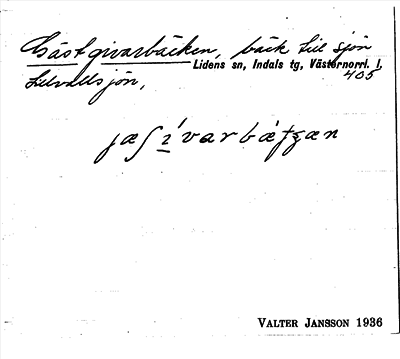 Gästgivarbäcken, bäck till sjön
Lidens sn, Indals tg, Västernorrl. l.
405
Lillvallssjön,
jæʃívarbǽtʃæn
VALTER JANSSON 1936